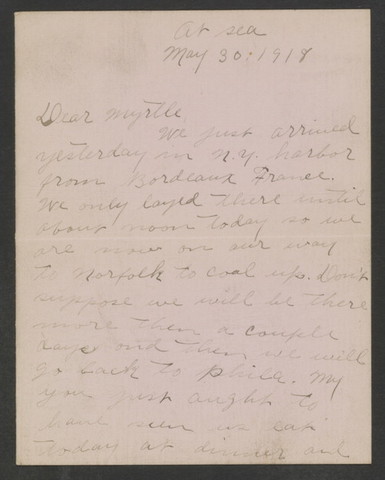 At sea
May 30: 1919
Dear Myrtle
We just arrived
yesterday in N.Y. harbor
from Bordeaux France.
We only layed there until
about noon today so we
are now on our way
to Norfolk to coal up. Don't
suppose we will be there
more then a couple
days and then we will
go back to phila. My
you just aught to
have seen us eat
today at dinner and